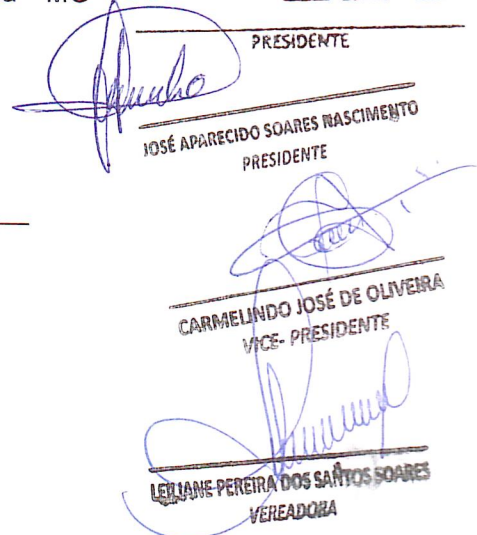 MG
PRESIDENTE
JOSÉ APARECIDO SOARES NASCIMENTO
PRESIDENTE
CARMELINDO JOSÉ DE OLIVEIRA
VICE- PRESIDENTE
PEREIRA DOS SANTOS SOARES
VEREADORA